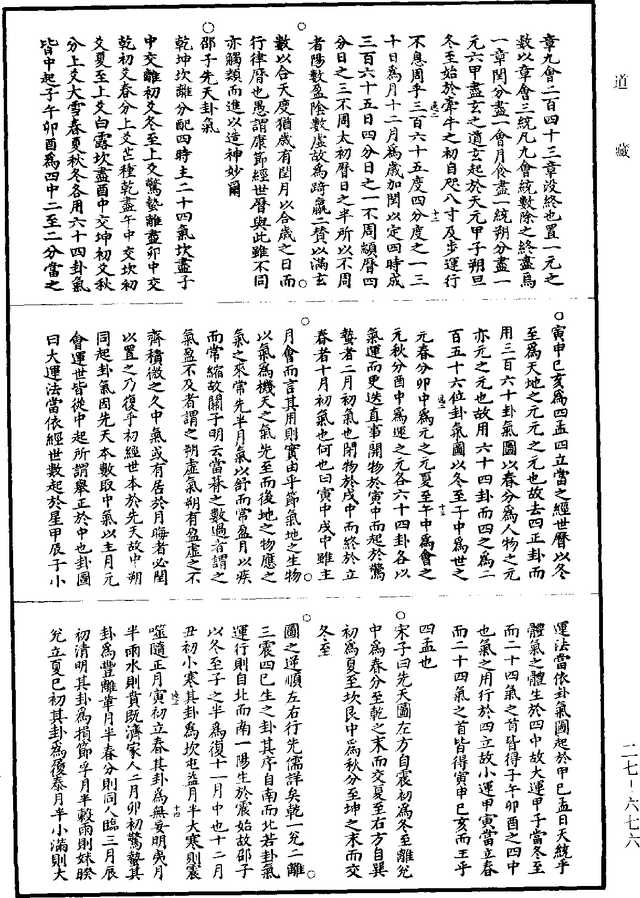 道藏
章九會二百四十三章沒終也置一元之
數以章會三統凡九會統數除之終盡焉
一章閏分盡一會月食盡一統朔分盡一
元六甲盡玄之道玄起於天元甲子朔旦
冬至始於牽牛之初自咫八寸及步運行
不息周乎三百六十五度四分度之一三
十日為月十二月為歲加閏以定四時成
三百六十五日四分日之一不周顓曆四
分日之三不周太初曆日之半所以不周
者陽數盈陰數虛故為踦嬴二贊以滿玄
數以合天度猶歲有閏月以合歲之日而
行律曆也愚謂康節經世曆與此雖不同
亦觸類而進以造神妙爾
○邵子先天卦氣
乾坤坎離分配四時主二十四氣坎盡子
中交離初爻冬至上爻驚蟄離盡卯中交
乾初爻春分上爻芒種乾盡午中交坎初
爻夏至上爻白露坎盡酉中交坤初爻秋
分上爻大雪春夏秋冬各用六十四卦氣
皆中起子午卯酉為四中二至二分當之
○寅申巳亥為四孟四立當之經世曆以冬
至為天地之元元之元也故去四正卦而
用三百六十卦氣圖以春分為人物之元
亦元之元也故用六十四卦而四之為二
百五十六位卦氣圖以冬至子中為世之
元春分卯中為元之元夏至午中為會之
元秋分酉中為運之元各六十四卦各以
氣運而更迭直事開物於寅中而起於驚
蟄者二月初氣也閉物於戌中而終於立
春若十月初氣也何也曰寅中戌中雖主
月會而言其用則實由乎節氣地之生物
以氣為機天之氣先至而後地之物應之
氣之來常先半月氣以舒而常盈月以疾
而常縮故關子明云當朞之數過者謂之
氣盈不及者謂之朔虛氣朔有盈虛之不
齊積微之久中氣或有居於月晦者必閏
以置之乃復乎初經世本於先天故中朔
同起卦氣因先天本數取中氣以主月元
會運世皆從中起所謂舉正於中也卦圖
曰大運法當依經世數起於星甲辰子小
運法當依卦氣圖起於甲巳孟日天統乎
體氣之體生於四中故大運甲子當冬至
而二十四氣之首皆得子午卯酉之四中
也氣之用行於四立故小運甲寅當立春
而二十四氣之首皆得寅申巳亥而王乎
四孟也
○宋子曰先天圖左方自震初為冬至離兌
中為春分至乾之末而交夏至右方自巽
初為夏至坎艮中為秋分至坤之末而交
冬至
圖之逆順左右行先儒詳矣乾一兌二離
三震四已生之卦其序自南而北若卦氣
運行則自北而南一陽生於震始故邵子
以冬至子之半為復十一月中也十二月
丑初小寒其卦為坎屯益月半大寒則震
噬隨正月寅初立春其卦為無妄明夷月
半雨水則賁既濟家人二月卯初驚蟄其
卦為豐離革月半春分則同人臨三月辰
初清明其卦為損節孚月半穀雨則妹睽
兌立夏巳初其卦為復泰月半小滿則大
二七-六七六